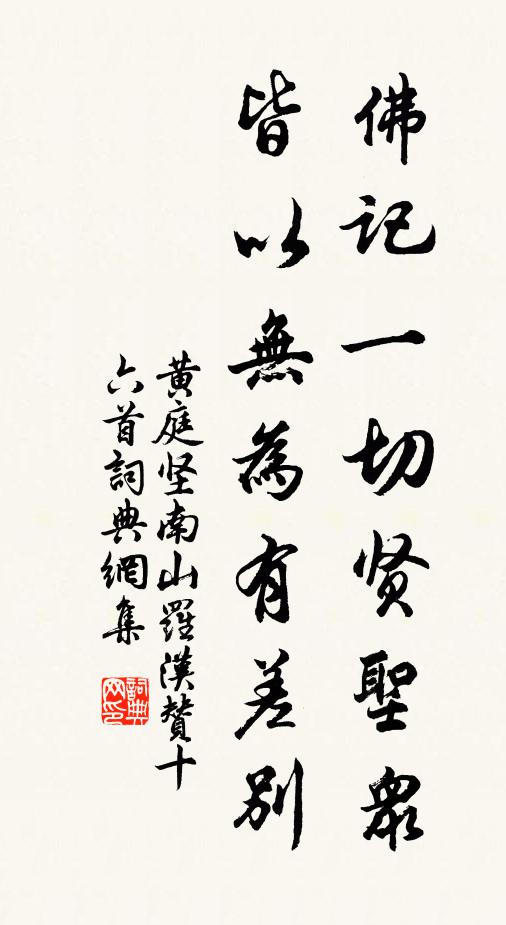 佛记一切贤聖眾
皆以無為有差别
黄庭坚南山羅漢贊十
六首詞典網集
詞典
网印